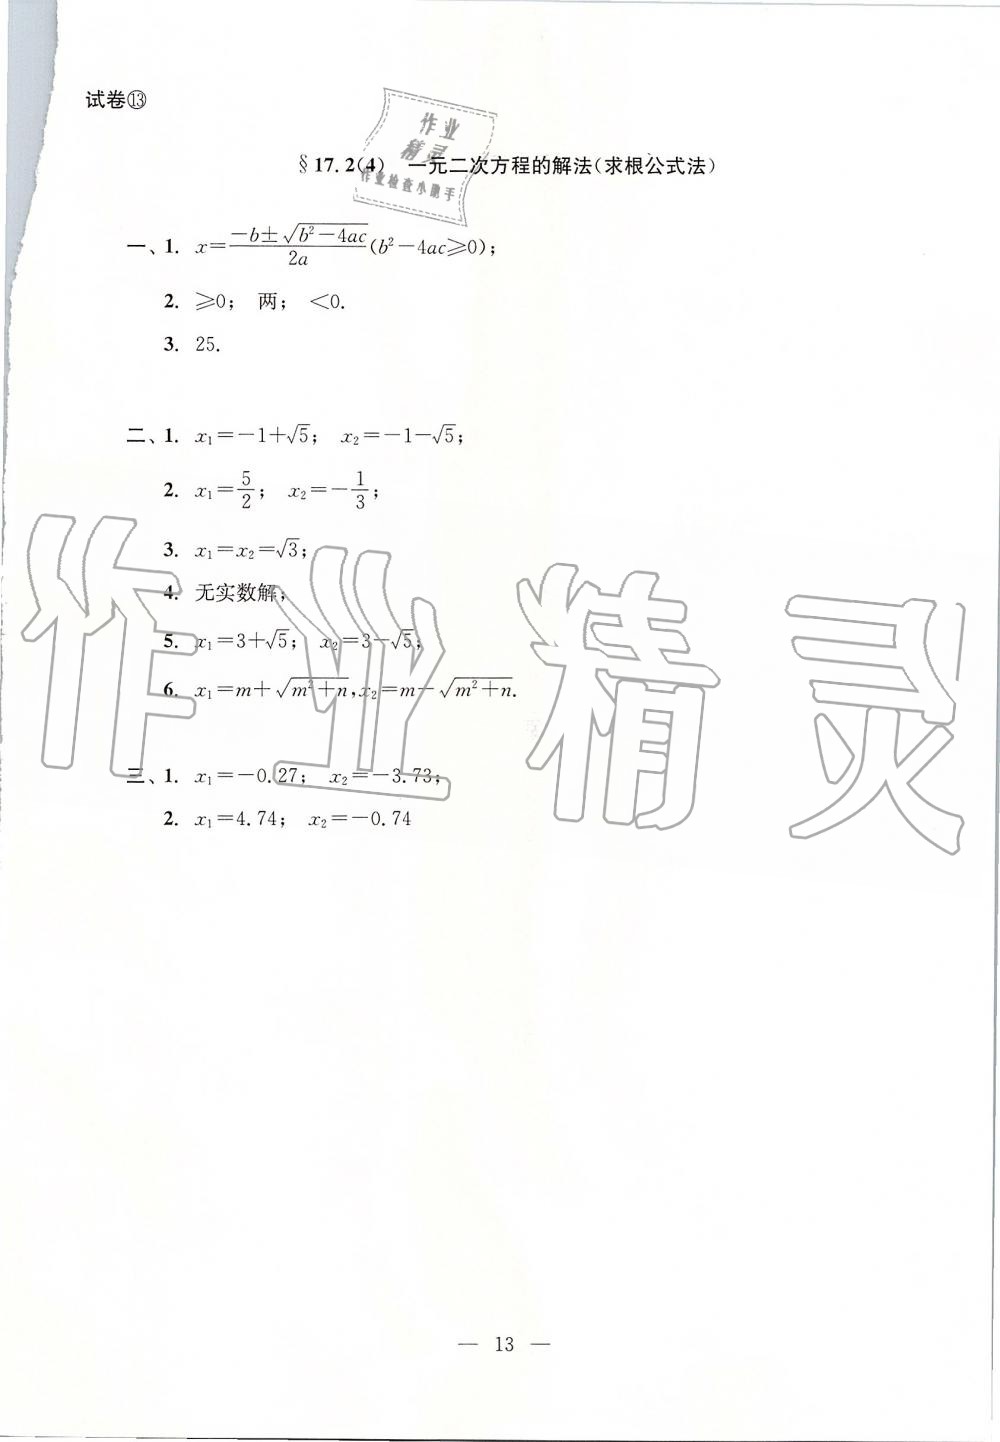 试卷⑬
作业
精灵
§17.2(4) 一元二次方程的解法(求根公式法)
作业检查小助手
一、1. x=\frac{-b±\sqrt{b²-4ac}}{2a}(b²-4ac≥0);
2. ≥0; 两; <0.
3. 25.
二、1. x₁=-1+√5; x₂=-1-√5;
2. x₁=\frac{5}{2}; x₂=-\frac{1}{3};
3. x₁=x₂=√3;
4. 无实数解;
5. x₁=3+√5; x₂=3-√5;
6. x₁=m+\sqrt{m²+n},x₂=m-\sqrt{m²+n}.
作业精灵
三、1. x₁=-0.27; x₂=-3.73;
2. x₁=4.74; x₂=-0.74
— 13 —